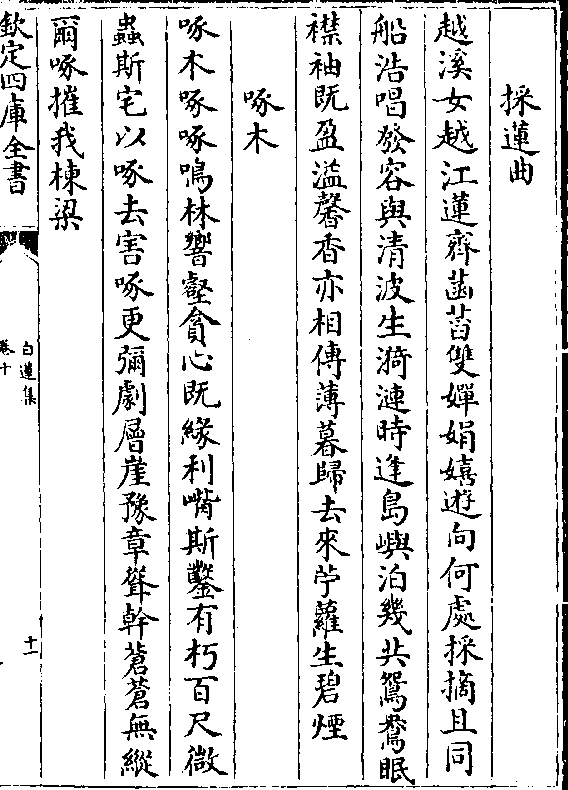 採蓮曲
越溪女越江蓮齊菡萏雙嬋娟嬉遊向何處採摘且同
船浩唱發容與清波生漪漣時逢島嶼泊幾共鴛鴦眠
襟袖既盈溢馨香亦相傳薄暮歸去來苧蘿生碧煙
啄木
啄木啄啄鳴林響壑貪心既緣利觜斯鑿有朽百尺微
蟲斯宅以啄去害啄更彌劇層崖豫章聳幹蒼蒼無縱
爾啄摧我棟梁
欽定四庫全書
白蓮集
卷十
十一